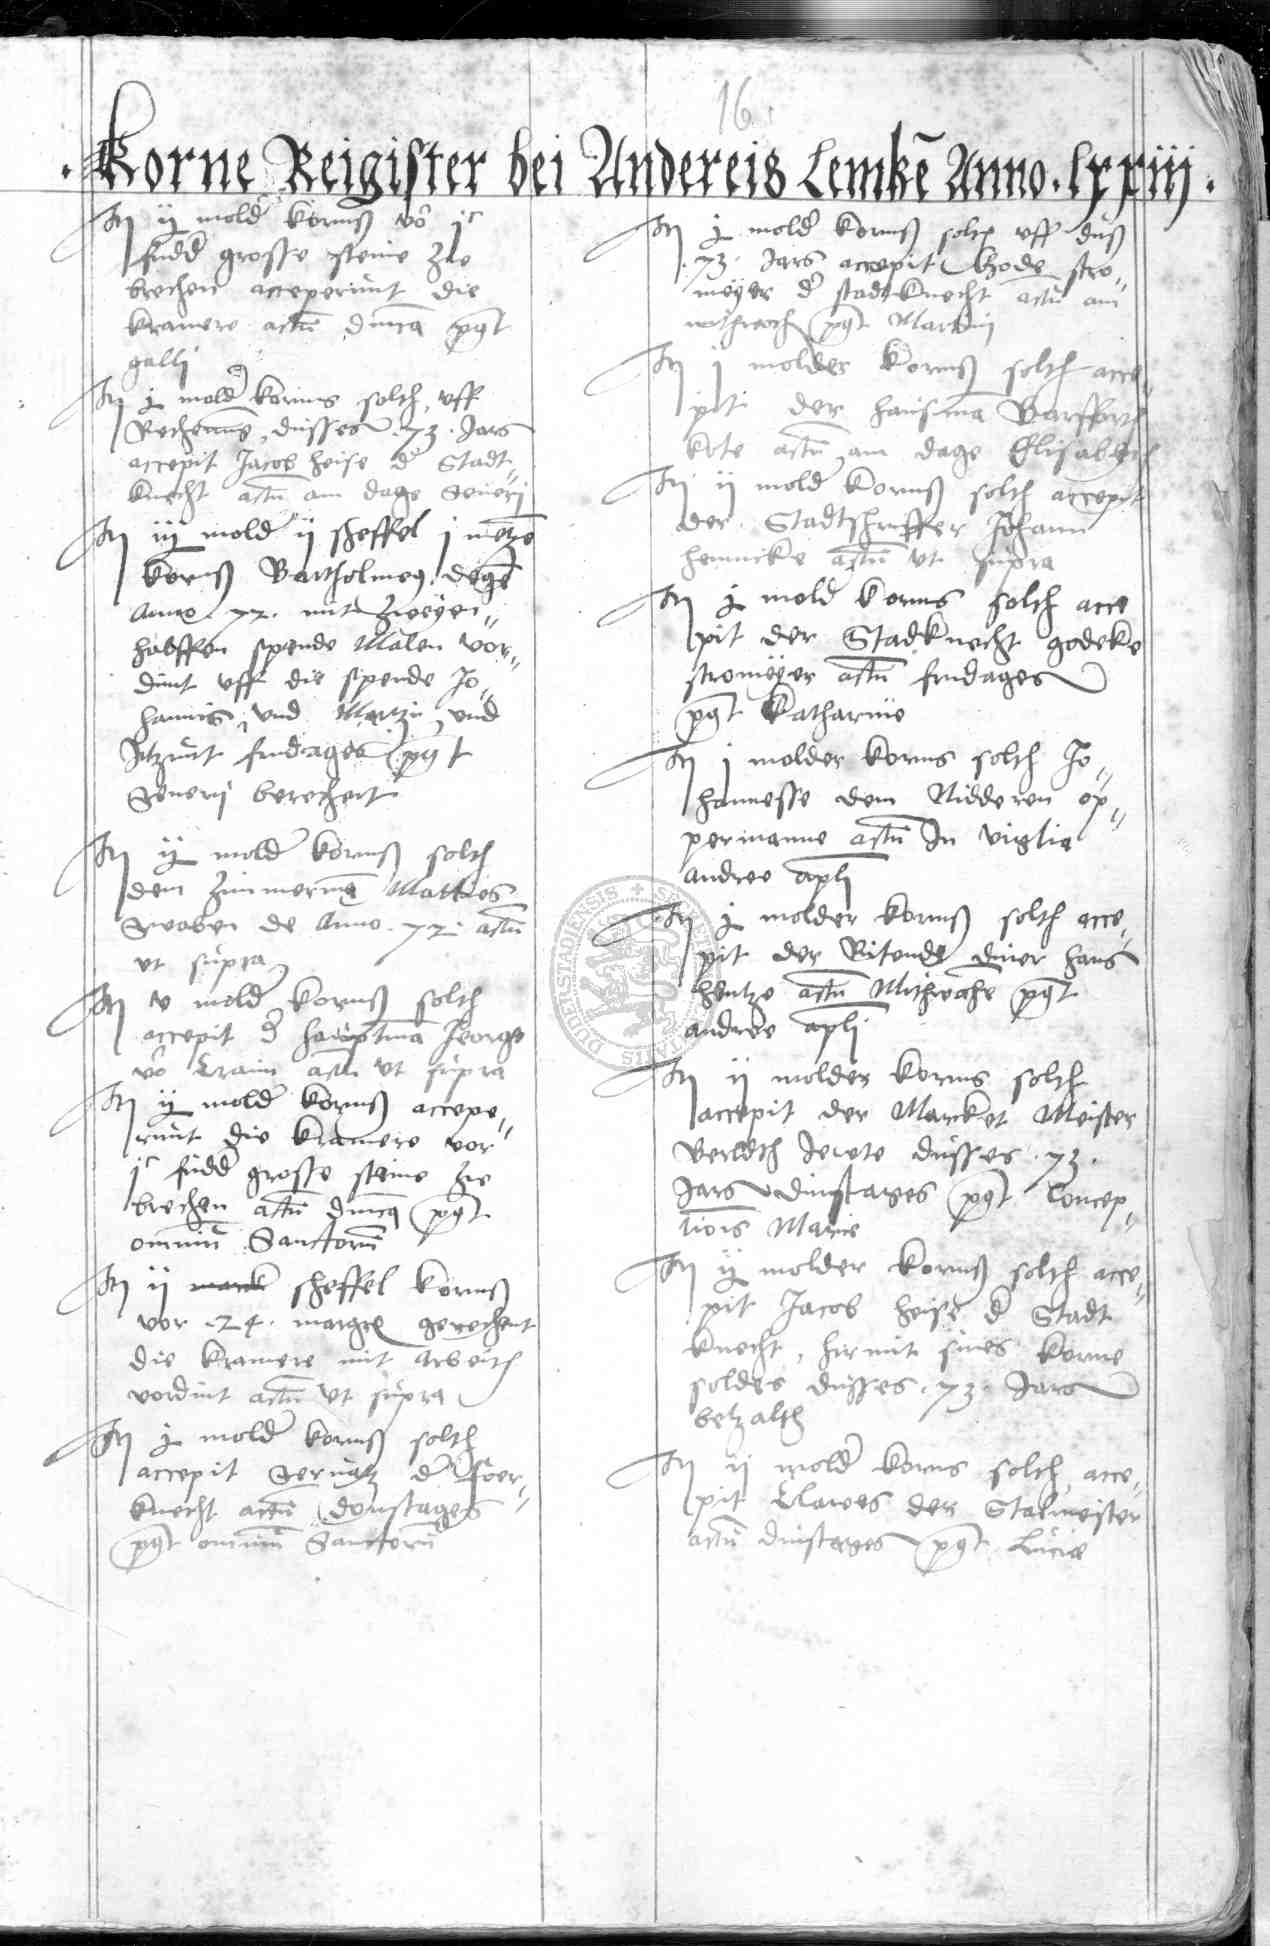 16
. Korne Reigister bei Andereis Lemkē Anno . lxxiii .
Itē ij mold' kornß vō jc
fudd' grosse steine zue
brechen acceperunt die
kramere actū dn̄ica pꝰt
galli
Itē j mold' korns solth uff
Rechenung dusses .73. Jars
accepit Jacob heise d' Stadt
knecht actū am dage Seueri
Itē iij mold' ij scheffel j metzē
kornß Bartholmeꝰ degē
Anno .72. mit zweyen
spende Malen vor
dint uff die spende Jo
hannis und Martini und
Itzunt fridages pꝰt
Seueri berechent
Itē ij mold' kornß solth
dem zimmermā Matties
Swaben de Anno .72. actū
ut supra
Itē v mold' kornß solth
accepit d' hauptmā Jeorge
vō actū ut supra
Itē ij mold' kornß accepe
runt die kramere vor
jc fudd' grosse steine zue
brechen actū dn̄ica pꝰt
omniū Sanctorū
Itē ij scheffel kornß
vor .24. gerechent
die kramere mit arbeith
vordint actū ut supra
Itē j mold' kornß solth
accepit Seruatz d'
knecht actū donstages
pꝰt omniū Sanctorū
Itē j mold' kornß solth uff duß
.73. Jars accepit Gode stro
meyer d' stadtknecht actū am
mithwoch pꝰt Martini
Itē j molder kornß solth acce
pit der hausmā
actū am dage Elisabeth
Itē ij mold' kornß solth accepit
der Stadtschriffer Johann
hennicke actū ut supra
Itē j mold korns solth acce
pit der Stadknecht godeke
stromeyer actū fridages
pꝰt Katharine
Itē j molder korns solth Jo
hannesse dem Nidderen op
permanne actū In vigilia
andree apli
Itē j molder kornß solth acce
pit der Ritende diner hans
hentze actū Mithwoche pꝰt
andree apli
Itē ij molder korns solth
accepit der Marcket Meister
dusses .73.
Jars dinstages pꝰt Concep
tiōis Marie
Itē ij molder kornß solth acce
pit Jacob heise d' Stadt
knecht, hir mit sines korne
soldes dusses .73. Jars
betzalth
Itē ij mold' korns solth acce
pit Clawes der Stalmeister
actū dinstages pꝰt Lucie